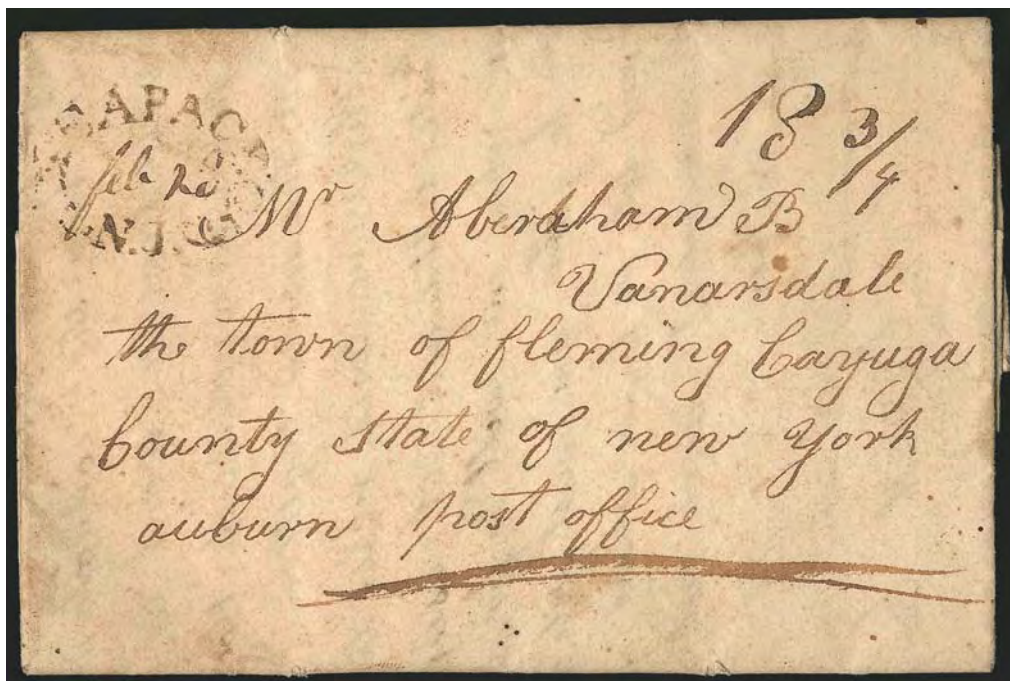 PEAPACK
feb 20
N.J.
18 3/4
Mr Aberdham B
Vanarsdale
the town of fleming Cayuga
County state of new york
auburn post office